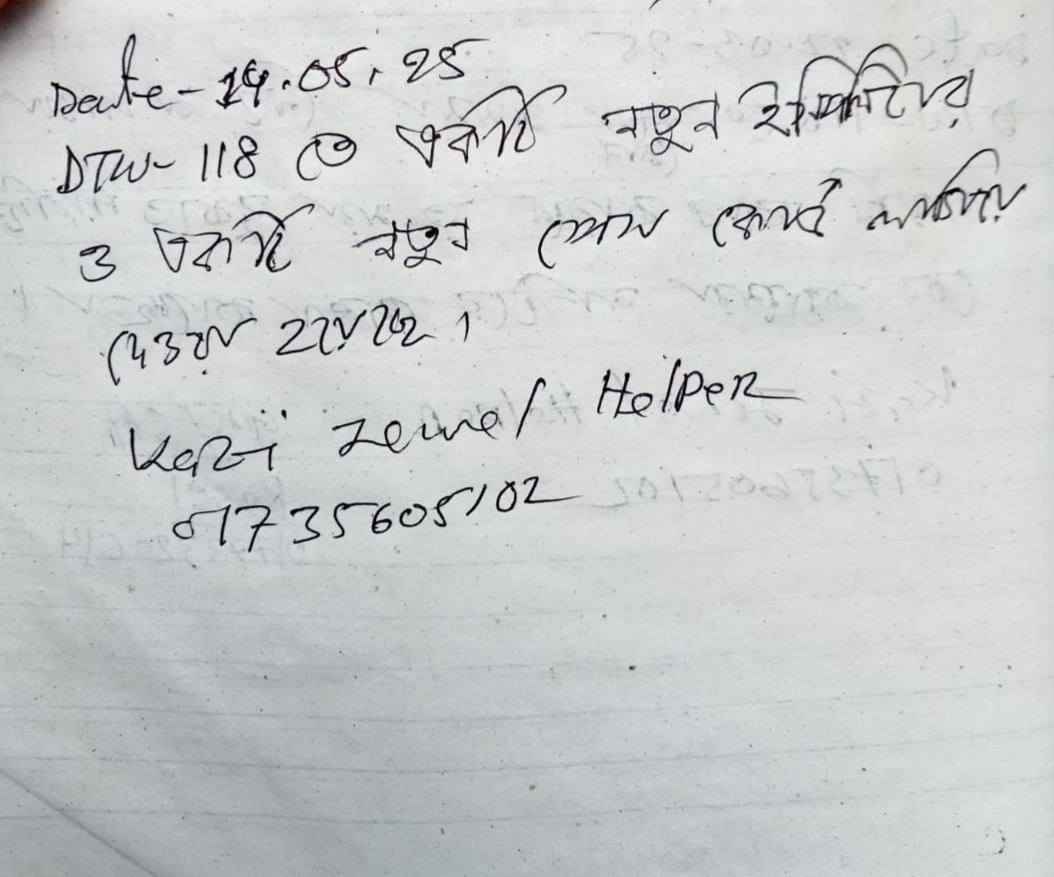 Date - 14.05.25
DTW- 118 তে একটি নতুন
ও একটি নতুন সেল
দেওয়া হয়েছে ।
Kazi Jewel Helper
01735605102